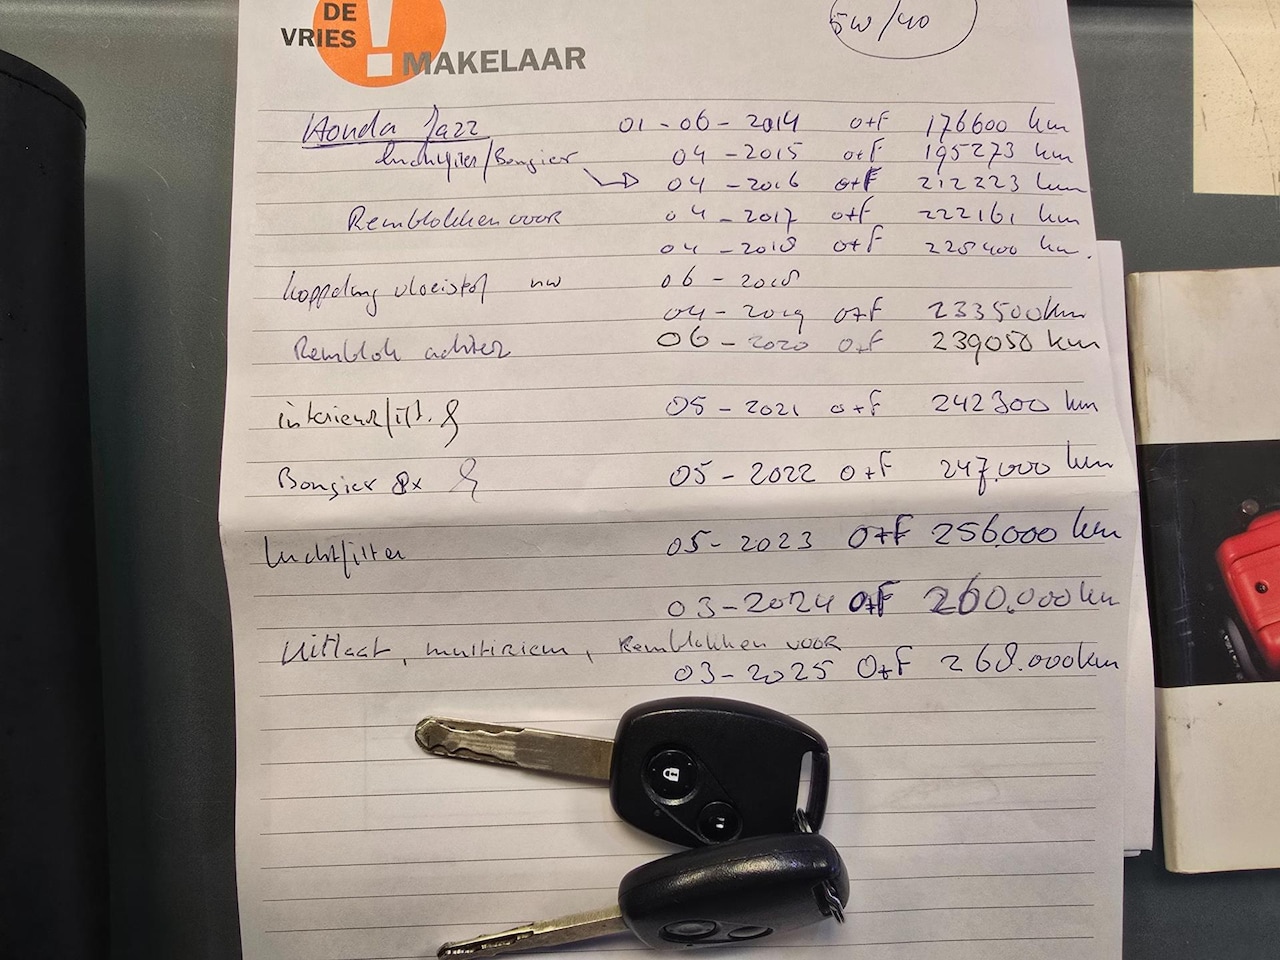 DE
VRIES
MAKELAAR
5W/40
Honda Jazz 01-06-2014 o+F 176600 km
luchtfilter/Bougier 04-2015 o+F 195273 km
04-2016 o+F 212223 km
Remblokken voor 04-2017 o+F 222161 km
04-2018 o+F 228400 km.
koppeling vloeistof nw 06-2018
04-2019 o+F 233500km
Remblok achter 06-2020 o+F 239050 km
interieur/filt. 05-2021 o+F 242300 km
Bougier 8x 05-2022 o+F 247.000 km
luchtfilter 05-2023 O+F 256.000 km
03-2024 O+F 260.000km
Uitlaat, multiriem, Remblokken voor
03-2025 O+F 268.000km